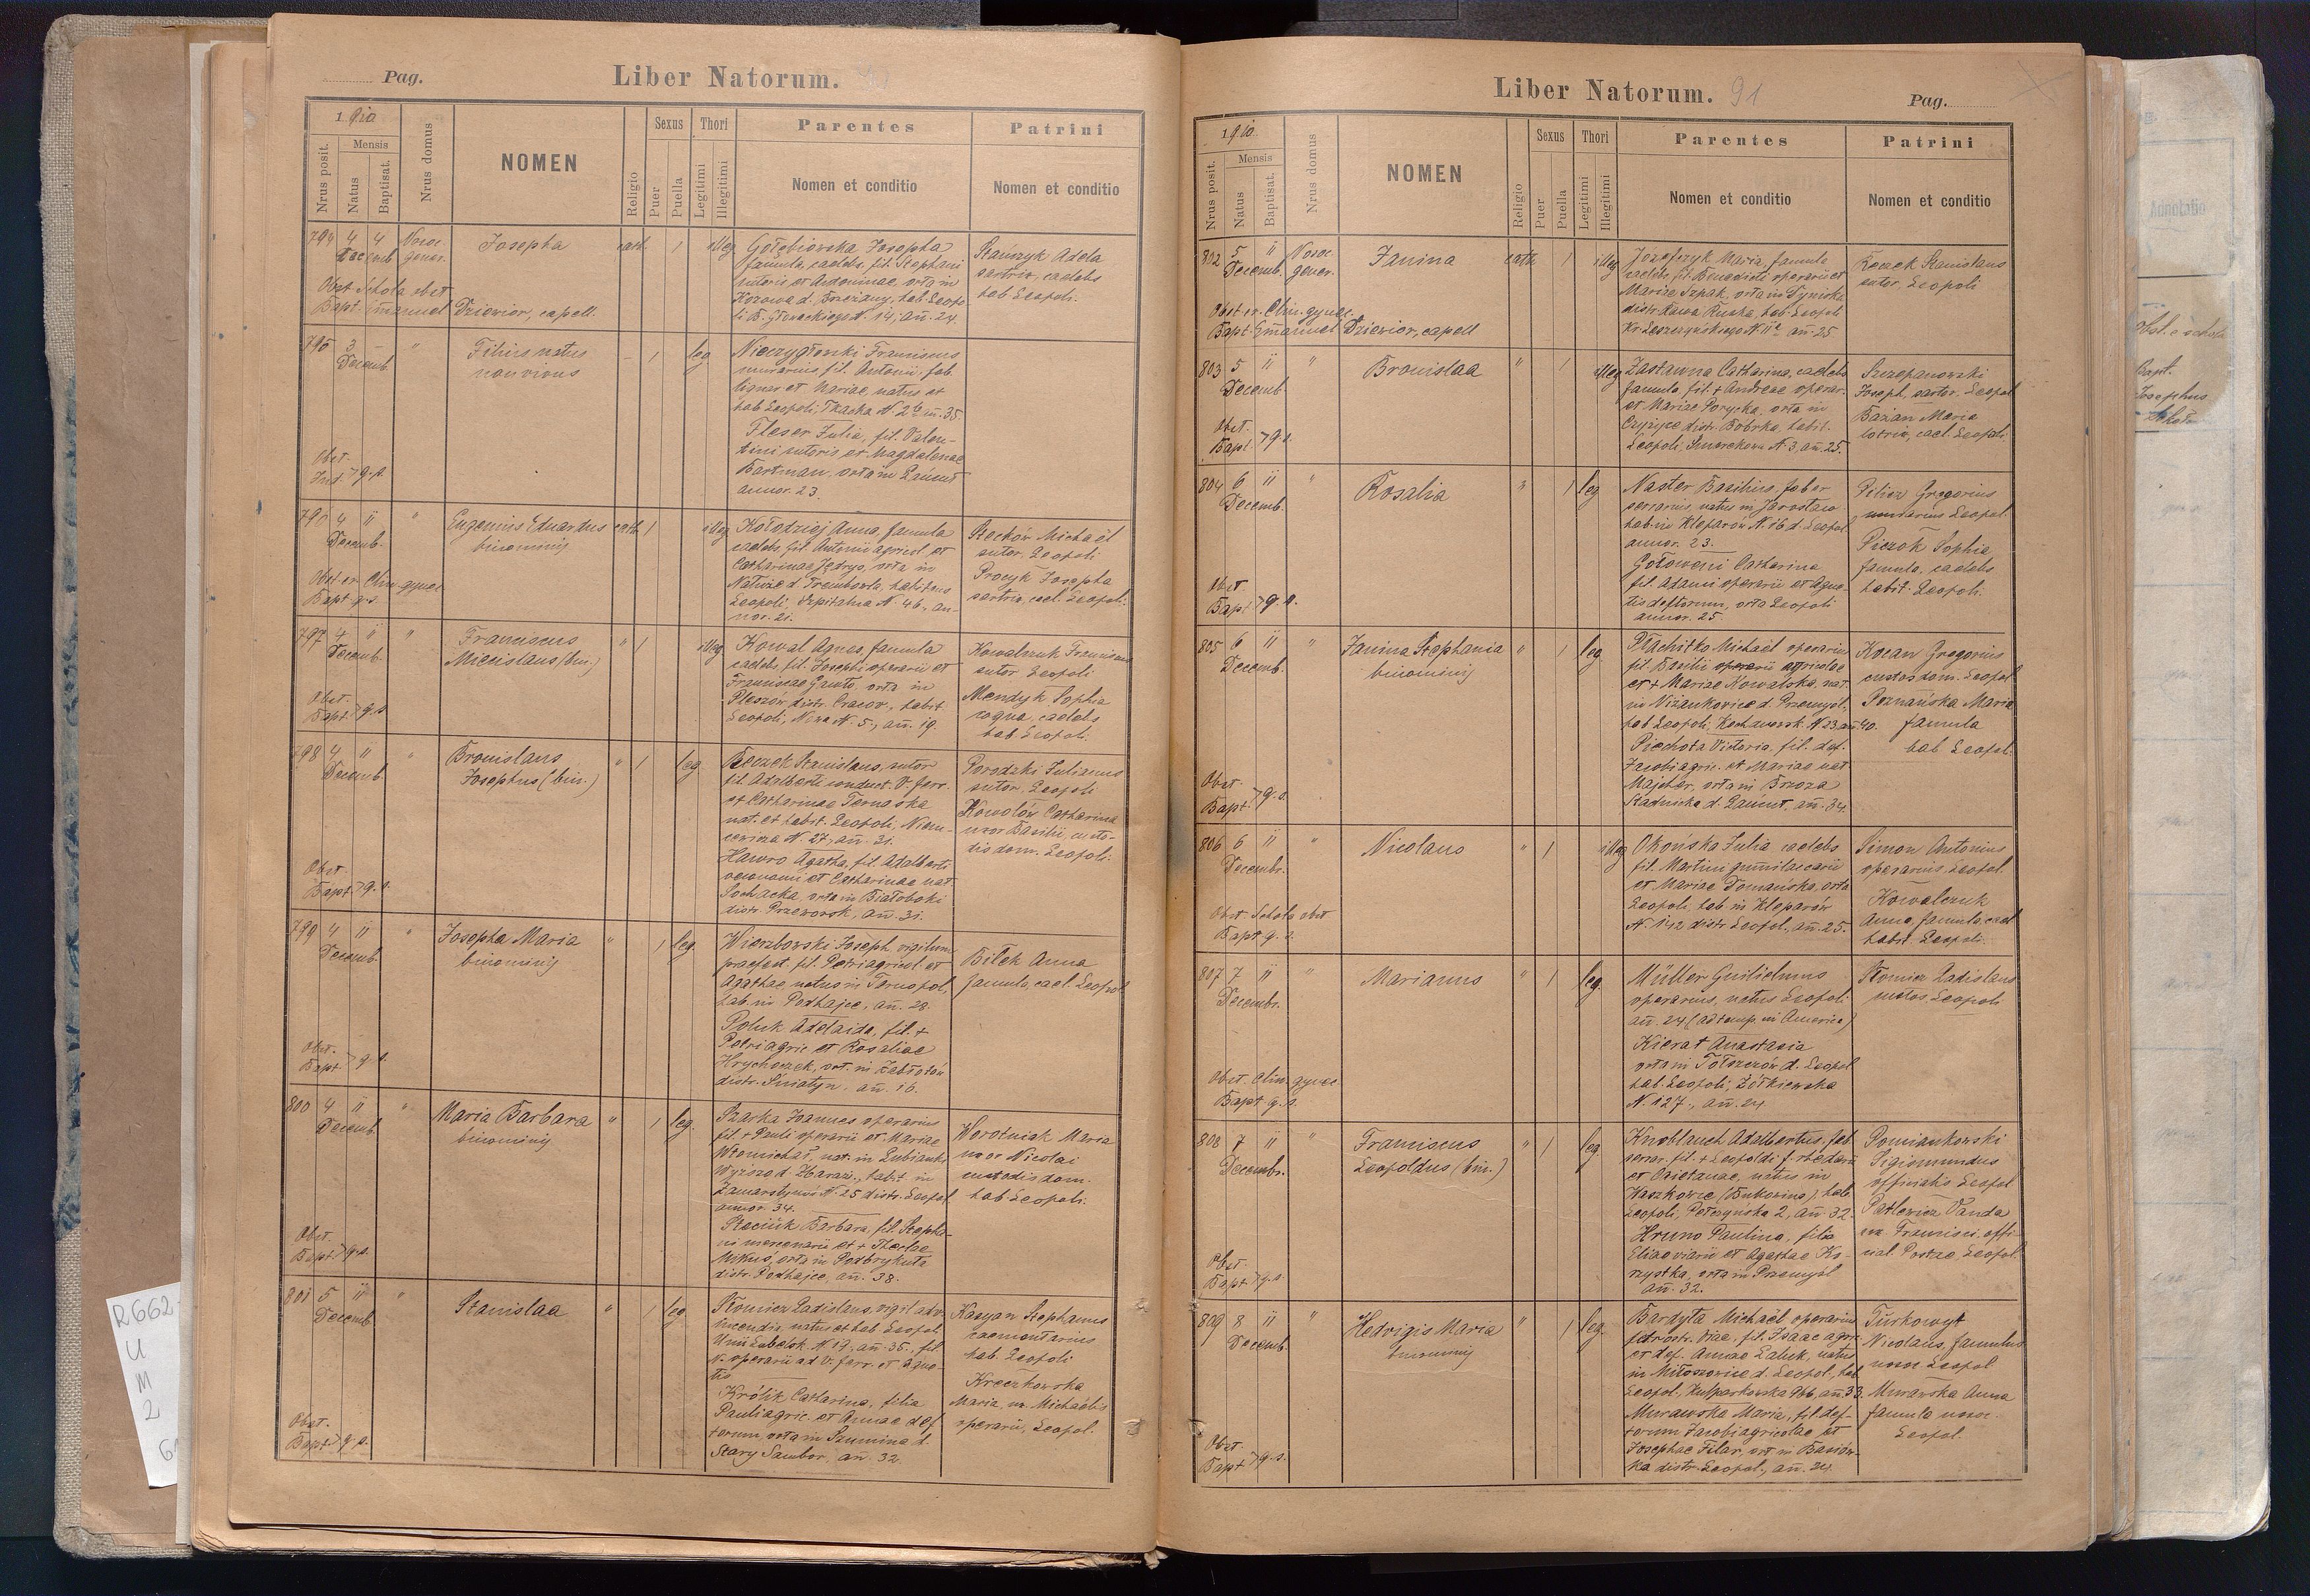 Pag.
Liber Natorum.
1910
Nrus posit.
Mensis
Natus
Baptisat.
Nrus domus
NOMEN
Religio
Sexus
Puer
Puella
Thori
Legitimi
Illegitimi
Parentes
Nomen et conditio
Patrini
Nomen et conditio
794 4 4 Nosoc. Josepha cath. 1 illeg
Decemb. gener.
Obst. Schola obst.
Bapt. Emanuel Dziewior, capell.
Gołębiowska Josepha
famula, caelebs, fil. Stephani
sutoris et Antoninae, orta in
Kozowa d. Brzeżany, hab. Leopo
li B. Głowackiego N. 14, ann. 24.
Stańczyk Adela
sartrix, caelebs
hab. Leopoli.
795 3 - " Filius natus - 1 leg
Decemb. non vivus
Obst.
Ind. > q. s.
Nieczygłowski Franciscus
murarius, fil. Antonii, fab.
lignar. et Mariae, natus et
hab. Leopoli, Tkacka N. 2, ann. 35.
Pleser Julia, fil. Valen-
tini sutoris et Magdalenae
Bartman, orta in Łańcut
annor. 23.
796 4 " " Eugenius Eduardus cath. 1 illeg
Decemb. binominis
Obst. ex Clin. gynec.
Bapt. q. s.
Kołodziej Anna, famula
caelebs, fil. Antonii agricol. et
Catharinae Jędrys, orta in
Nałuże d. Trembowla, habitans
Leopoli, Szpitalna N. 46, an-
nor. 21.
Stachów Michaël
sutor. Leopoli
Procyk Josepha
sartrix, cael. Leopoli.
797 4 " " Franciscus " 1 illeg
Decemb. Miecislaus (bin.)
Obst.
Bapt. > q. s.
Kowal Agnes, famula
caelebs, fil. Josephi operarii et
Franciscae Gawło, orta in
Pleszów, distr. Cracov., habit.
Leopoli, N. 5, ann. 19.
Kowalczuk Franciscus
sutor Leopoli
Mendyk Sophia
coqua, caelebs
hab. Leopoli.
798 4 " " Bronislaus " 1 leg
Decemb. Josephus (bin.)
Obst.
Bapt. > q. s.
Reczek Stanislaus, sutor
fil. Adalberti conduct. v. ferr.
et Catharinae Ternawska
nat. et habit. Leopoli, Niem-
cewicza N. 27, ann. 31.
Hawro Agatha, fil. Adalberti
oeconomi et Catharinae nat.
Sochacka, orta in Białoboki
distr. Przeworsk, ann. 31.
Porodzki Julianus
sutor, Leopoli
Kowalów Catharina
uxor Basilii, custo-
dis dom. Leopoli.
799 4 " " Josepha Maria " 1 leg.
Decemb. binominis
Obst.
Bapt. > q. s.
Wierzbowski Joseph. vigilum
praefect. fil. Petri agricol. et
Agathae, natus in Tarnopol,
hab. in Podhajce, ann. 28.
Poluk Adelaida, fil. +
Petri agric. et Rosaliae
Hrychorzek, ort. in Zabłotów
distr. Śniatyn, ann. 16.
Bilek Anna
famula, cael. Leopol.
800 4 " " Maria Barbara " 1 leg.
Decemb. binominis
Obst.
Bapt. > q. s.
Szarka Joannes operarius
fil. + Pauli operarii et Mariae
nat. in Łubianki
Wyższe d. Zbaraż., habit. in
Zamarstynów N. 25 distr. Leopol.
annor. 34.
Staciuk Barbara, fil. Stepha-
ni mercenarii et + Theclae
Mikuś, orta in
distr. Podhajce, ann. 38.
Worotniak Maria
uxor Nicolai
custodis dom.
hab. Leopoli.
801 5 " " Stanislaa " 1 leg
Decemb.
Obst.
Bapt. > q. s.
Słomicz Ladislaus, vigil adv.
incendia natus et hab. Leopol.
Unii Lubelsk. N. 19, ann. 35., fil.
N. operarii ad v. ferr. et Agne-
tis
Królik Catharina, filia
Pauli agric. et Annae def-
torum, orta in Szumina d.
Stary Sambor, ann. 32.
Kasyan Stephanus
caementarius
hab. Leopoli
Kreczkowska
Maria, ux. Michaëlis
operarii, Leopol.
Liber Natorum. 91
Pag.
1910
Nrus posit.
Mensis
Natus
Baptisat.
Nrus domus
NOMEN
Religio
Sexus
Puer
Puella
Thori
Legitimi
Illegitimi
Parentes
Nomen et conditio
Patrini
Nomen et conditio
802 5 11 Nosoc. Janina cath. 1 illeg
Decemb. gener.
Obst. ex Clin. gynec.
Bapt. Emanuel Dziewior, capell
Józefczyk Maria, famula
caelebs, fil. Benedicti operarii et
Mariae Szpak, orta in Dyniska
distr. Rawa Ruska, hab. Leopoli
Kr. Leszczyńskiego N. 11, ann. 25
Reczek Stanislaus
sutor, Leopoli
803 5 11 " Bronislaa " 1 illeg
Decemb
Obst.
Bapt. > q. s.
Zastawna Catharina, caelebs
famula, fil. + Andreae operar.
et Mariae Porycka, orta in
Czyżyce distr. Bóbrka, habit.
Leopoli, Smerekowa N. 3, ann. 25.
Szczepanowski
Joseph, sartor. Leopol
Bazan Maria
lotrix, cael. Leopoli
804 6 11 " Rosalia " 1 leg
Decemb.
Obst.
Bapt > q. s.
Naster Basilius, faber
ferrarius, natus in Jarosław
hab. in Kleparów N. 16 d. Leopol.
annor. 23.
Catharina
fil. Adami operarii et Agne-
tis deftorum, orta Leopoli
annor. 25.
Pelier Gregorius
murarius Leopol.
Pieczok Sophia
famula, caelebs
habit. Leopoli.
805 6 11 " Janina Stephania " 1 leg
Decemb. binominis
Obst
Bapt. > q. s.
Płachitko Michaël operarius
fil. Basilii operarii agricolae
et + Mariae Kowalska, nat.
in Niżankowice d. Przemyśl,
hab. Leopoli, Kochanowsk. N. 23, ann. 40.
Piechota Victoria, fil. def.
Jacobi agric. et Mariae nat.
Majcher, orta in Brzoza
Stadnicka d. Łańcut, ann. 34.
Kocan Gregorius
custos dom. Leopol
Poznańska Maria
famula
hab. Leopol.
806 6 11 " Nicolaus " 1 illeg
Decembr.
Obst. Schola obst
Bapt q. s.
Okońska Julia caelebs
fil. Martini
et Mariae Domańska, orta
Leopoli, hab. in Kleparów
N. 142 distr. Leopol., ann. 25.
Simon Antonius
operarius, Leopol.
Kowalczuk
Anna, famula, cael
habit. Leopoli.
807 7 11 " Marianus " 1 leg.
Decembr.
Obst. Clin. gynec
Bapt q. s.
Müller Guilielmus
operarius, natus Leopoli
ann. 24 (ad temp. in America)
Kierat Anastasia
orta in Tołszczów d. Leopol
hab. Leopoli, Żółkiewska
N. 127, ann. 24.
Słomicz Ladislaus
custos Leopoli
808 7 11 " Franciscus " 1 leg.
Decembr. Leopoldus (bin.)
Obst.
Bapt. > q. s.
Knoblauch Adalbertus, fab.
ferrar. fil. + Leopoldi f. rhedarii
et Caietanae, natus in
Waszkowce (Bukowina), hab.
Leopoli, Pełczyńska 2, ann. 32.
Hruno Paulina, filia
Eliae viarii et Agathae Ko-
rzystka, orta in Przemyśl
ann. 32.
Pomiankowski
Sigismundus
officialis Leopol
Patlewicz Vanda
ux. Francisci, offi-
cial. Postae Leopol.
809 8 11 " Hedvigis Maria " 1 leg.
Decemb. binominis
Obst.
Bapt > q. s.
Bardyta Michaël operarius
fil. Isaac agr.
et def. Annae Łaluk, natus
in Miłoszowice d. Leopol., hab.
Leopol., Kulparkowska 966, ann. 33.
Murawska Maria, fil. def-
torum Jacobi agricolae et
Josephae Filar, ort. in Basiów-
ka distr. Leopol., ann. 24.
Turkowyt
Nicolaus, famulus
nosoc. Leopol.
Murawska Anna
famula nosoc.
Leopol.
Annotatio
Josephus
R662
U
M
2